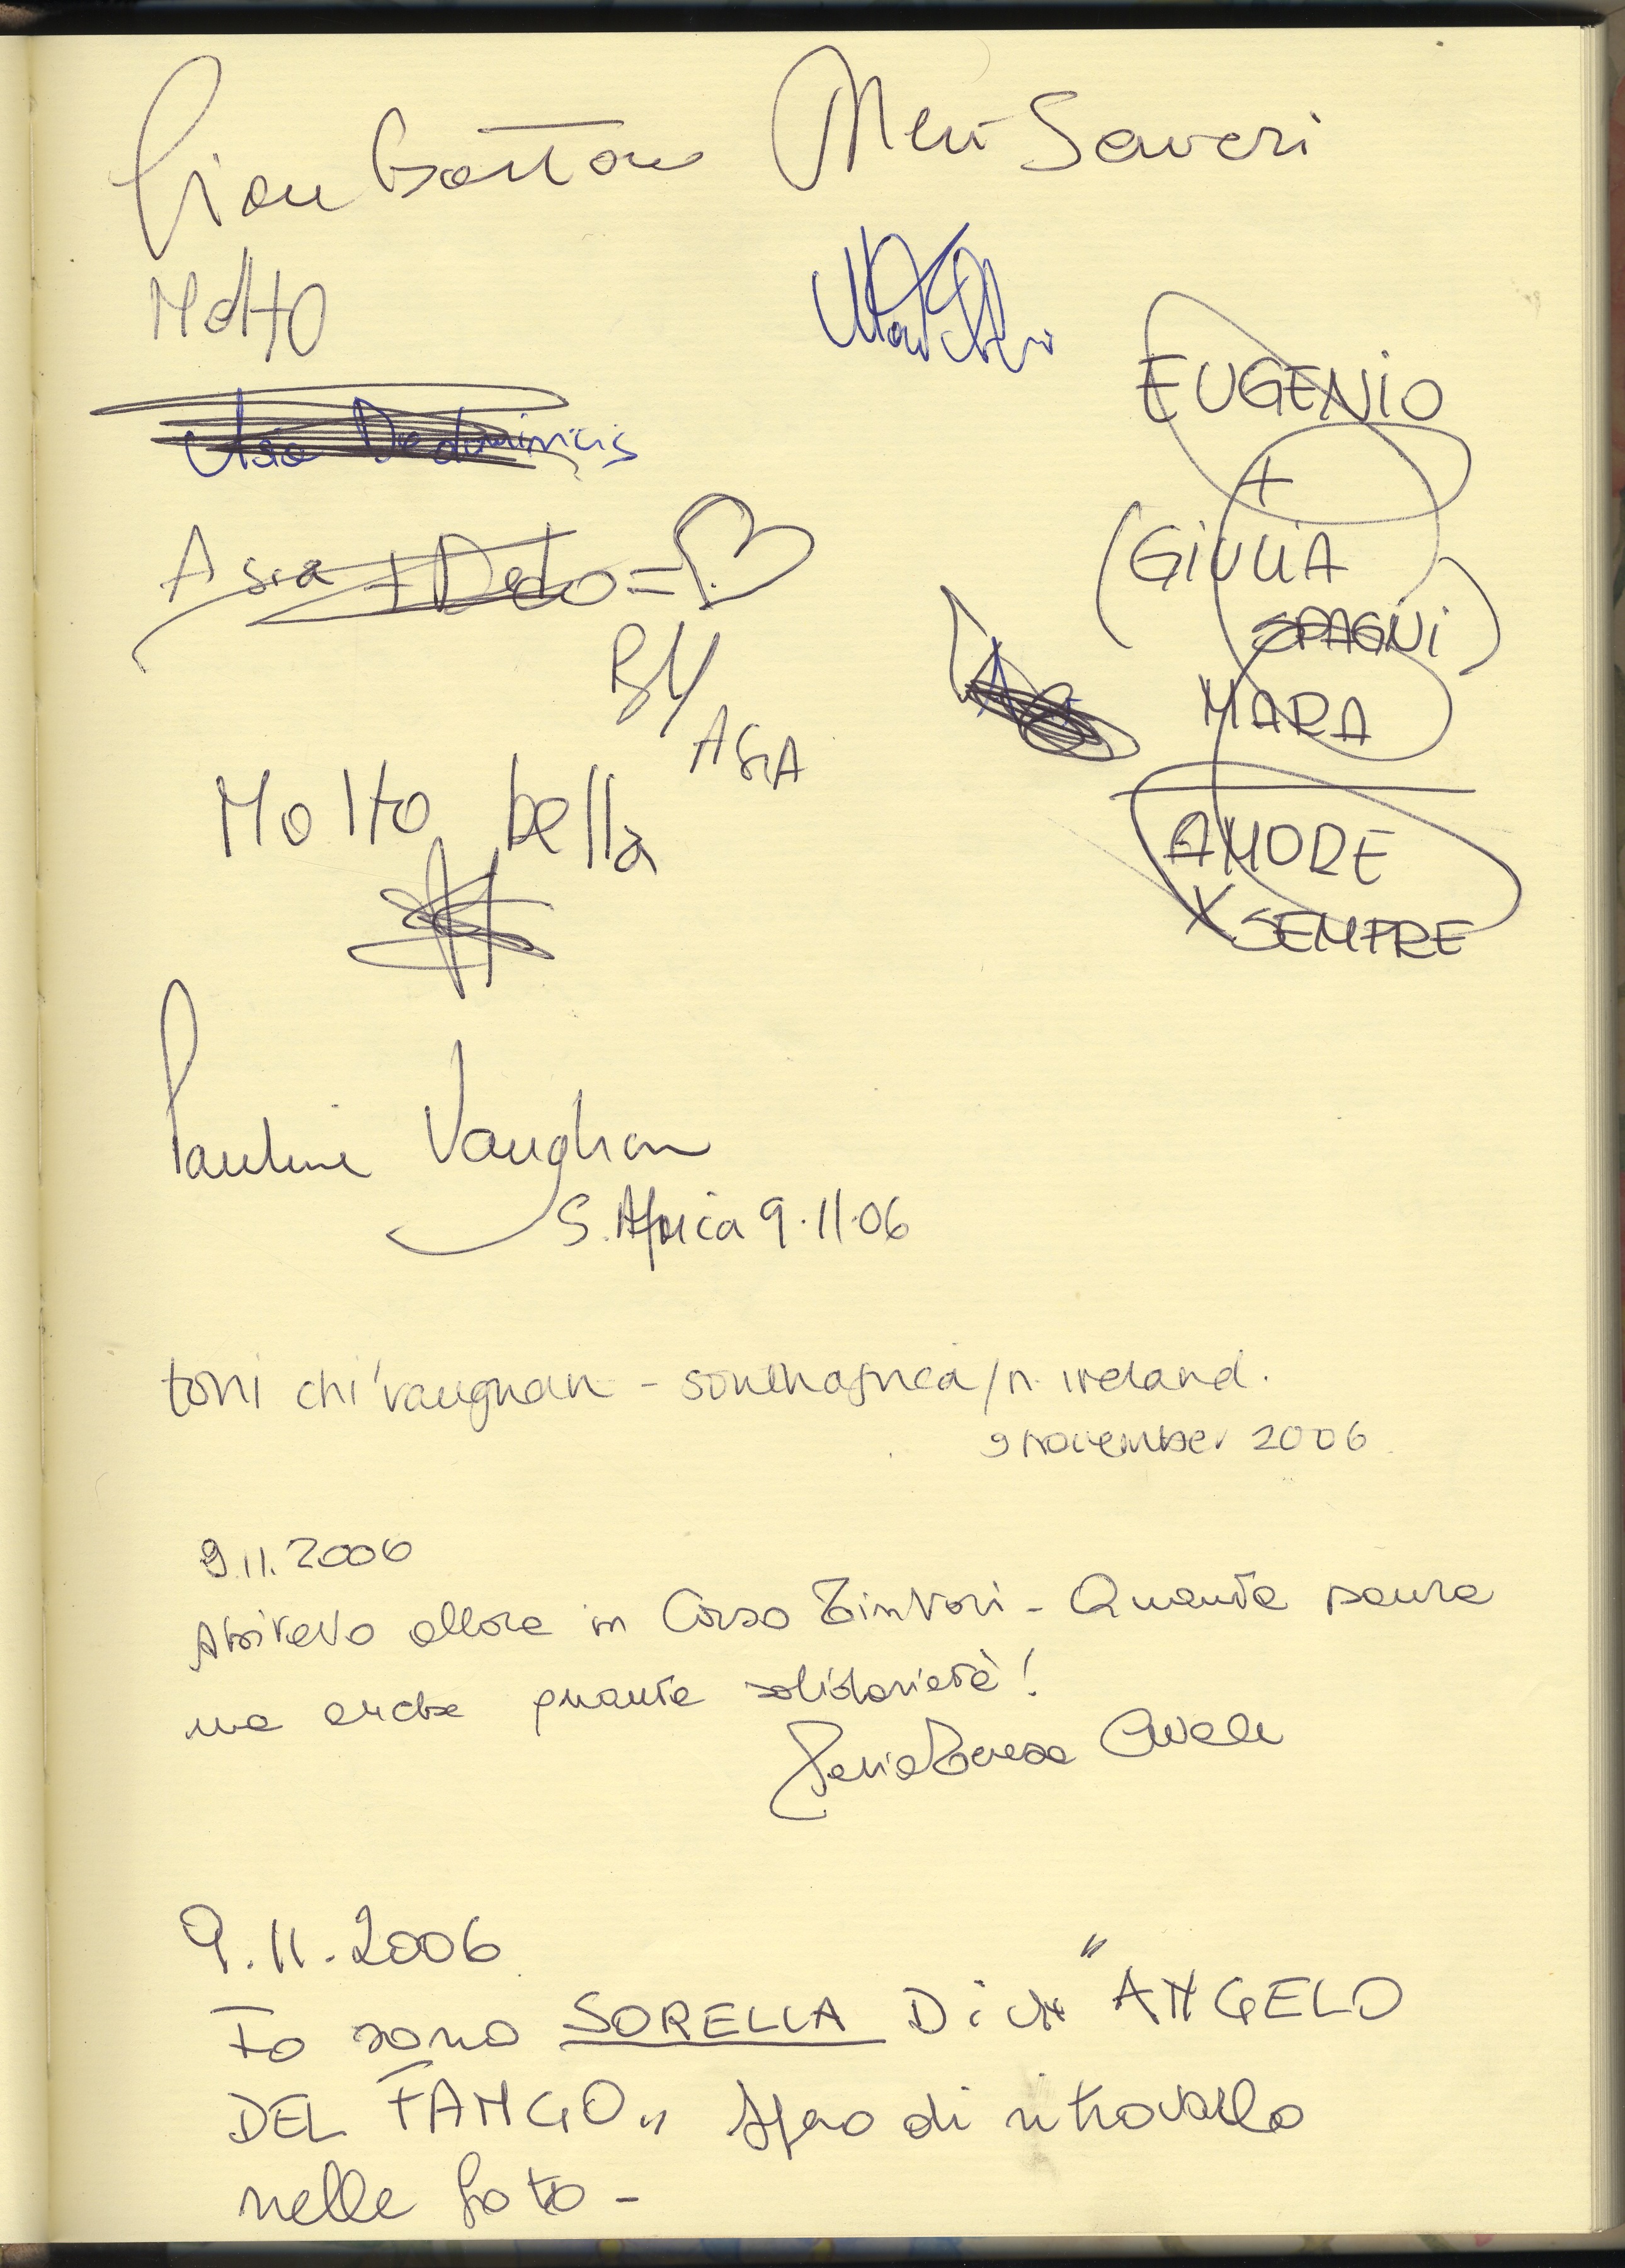 Saveri
Molto
Asia Dedominicis
EUGENIO
+
(GIULIA
SPAGNI)
MARA
AMORE
X SEMPRE
Asia + Dedo =
BY
ASIA
Molto bella
Pauline Vaughan
S. Africa 9.11.06
toni chi vaughan - southafrica/n. ireland.
9 november 2006
9.11.2006
Abitavo allora in Corso Tintori - Quanta paura
ma anche quanta solidarietà!
Maria Teresa
9.11.2006
Io sono SORELLA Di UN "ANGELO
DEL FANGO" spero di ritrovarlo
nelle foto -